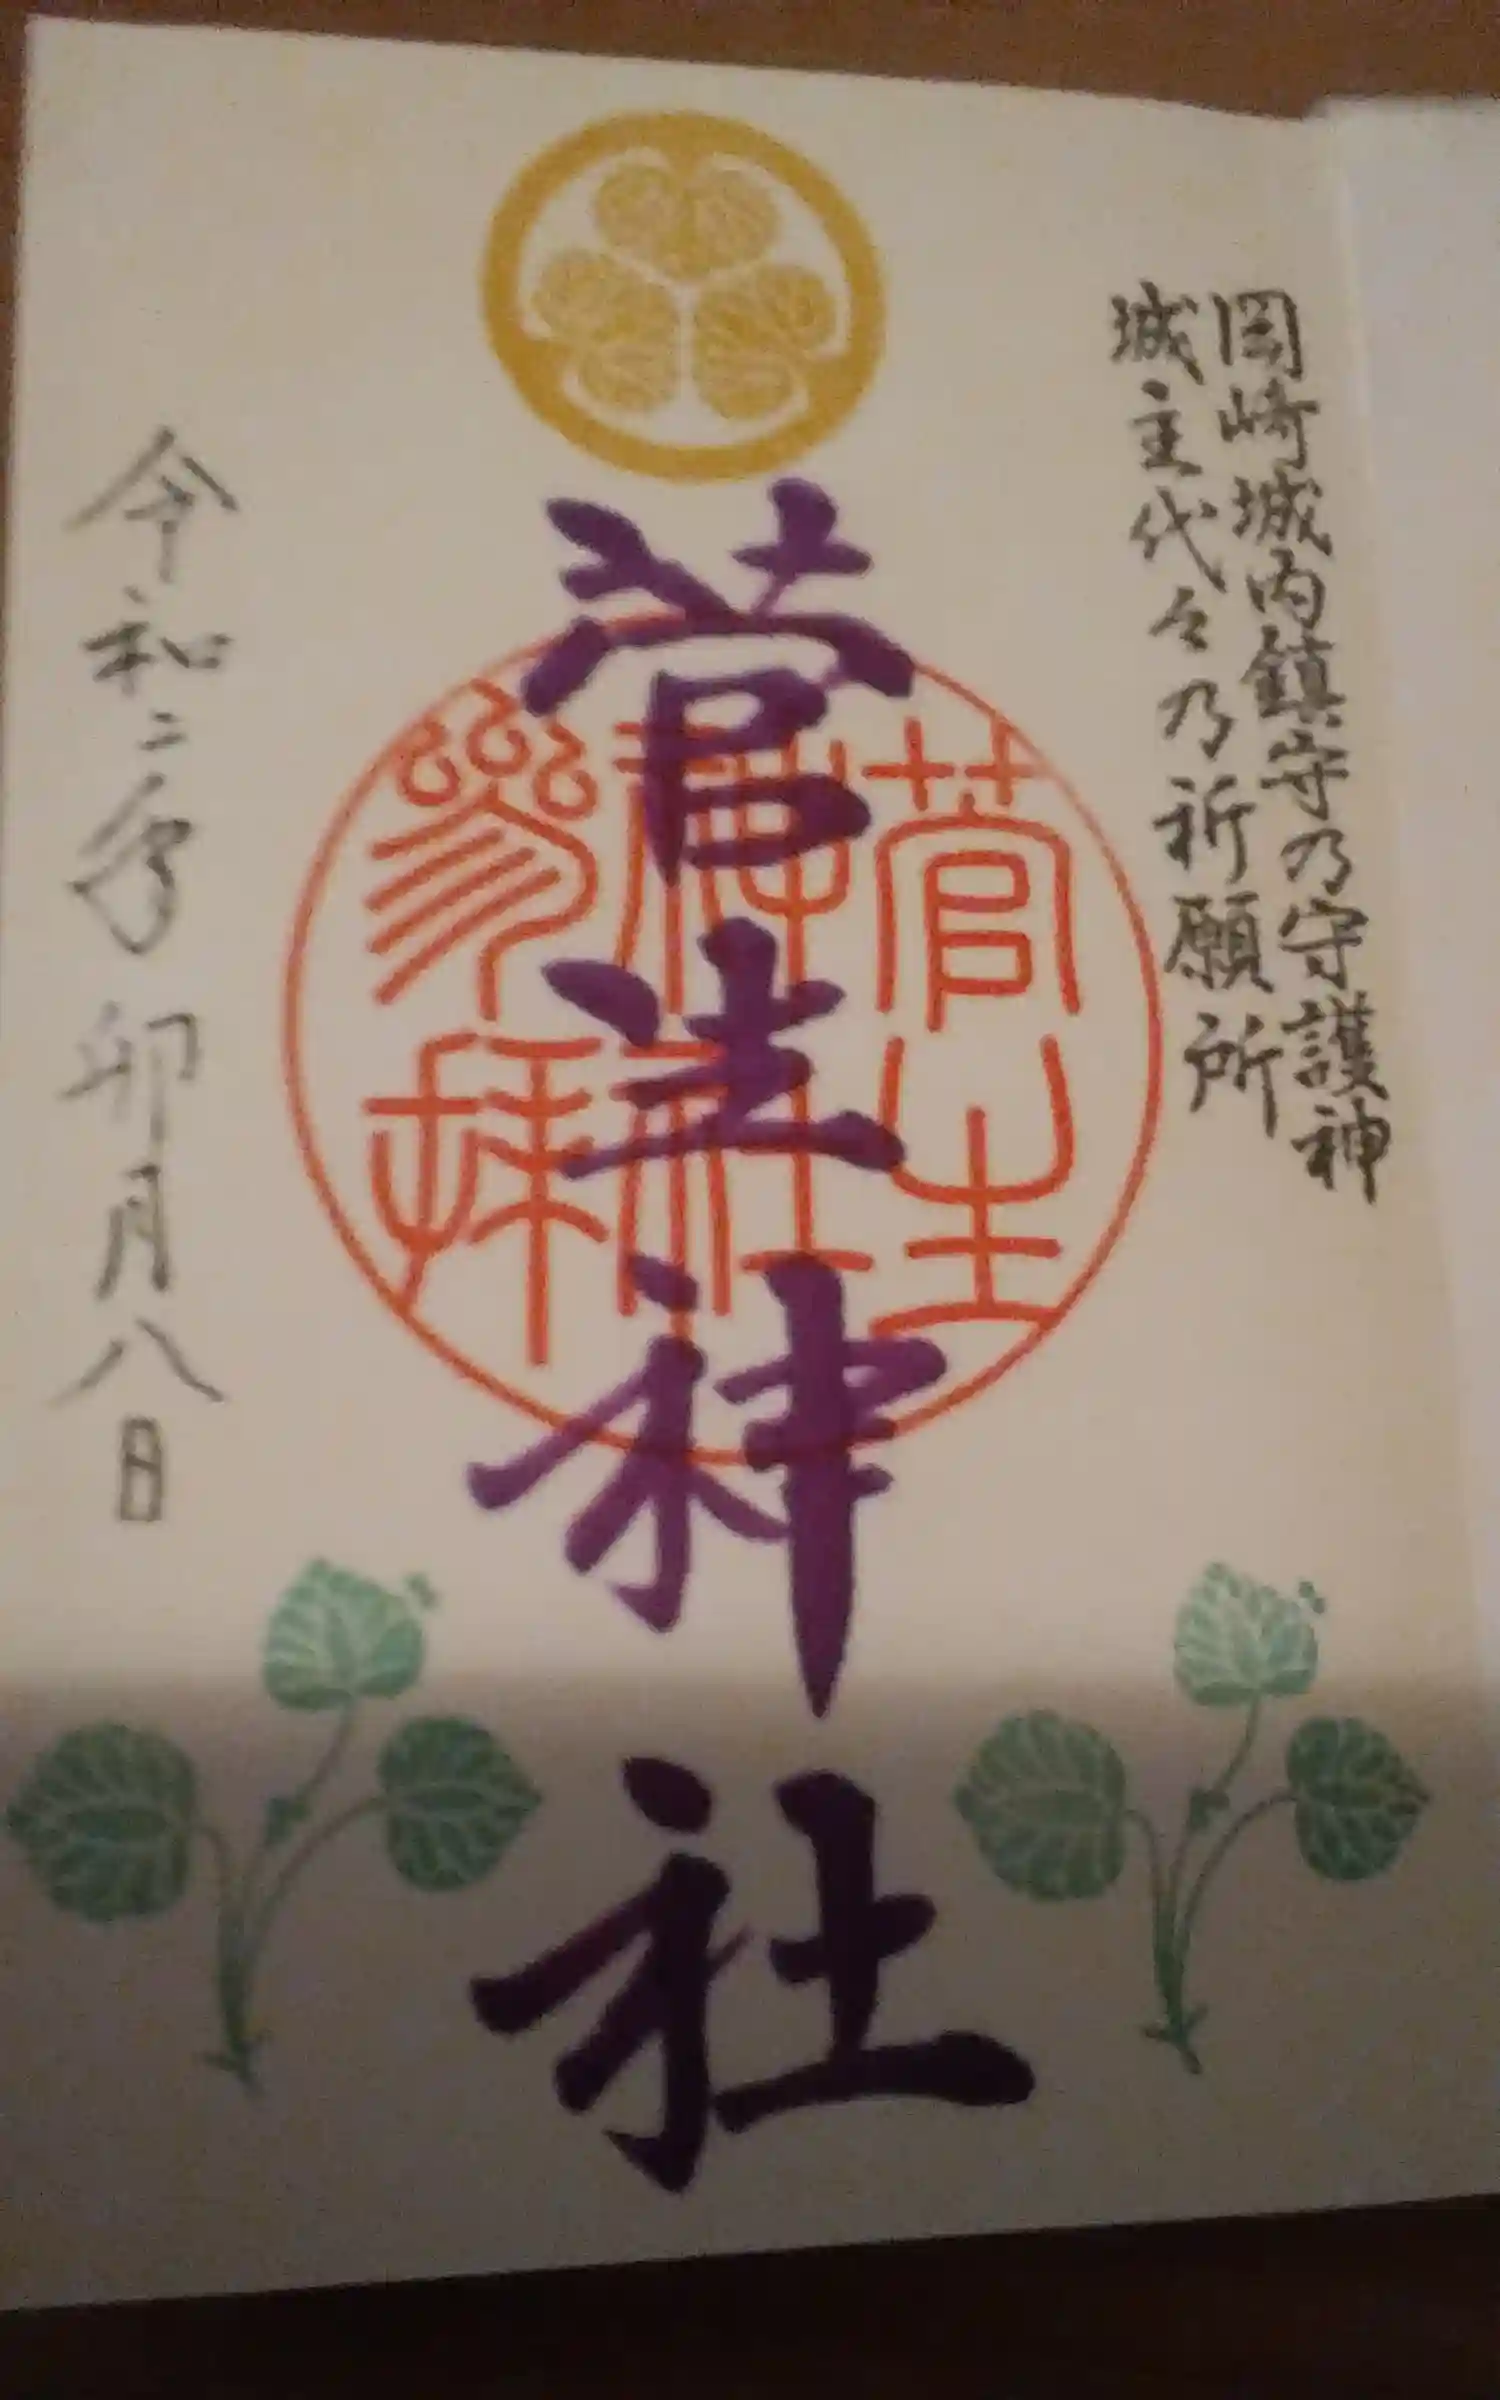 岡崎城内鎮守乃守護神
城主代々乃祈願所
菅生神社
菅生
神社
参拝
令和二年卯月八日